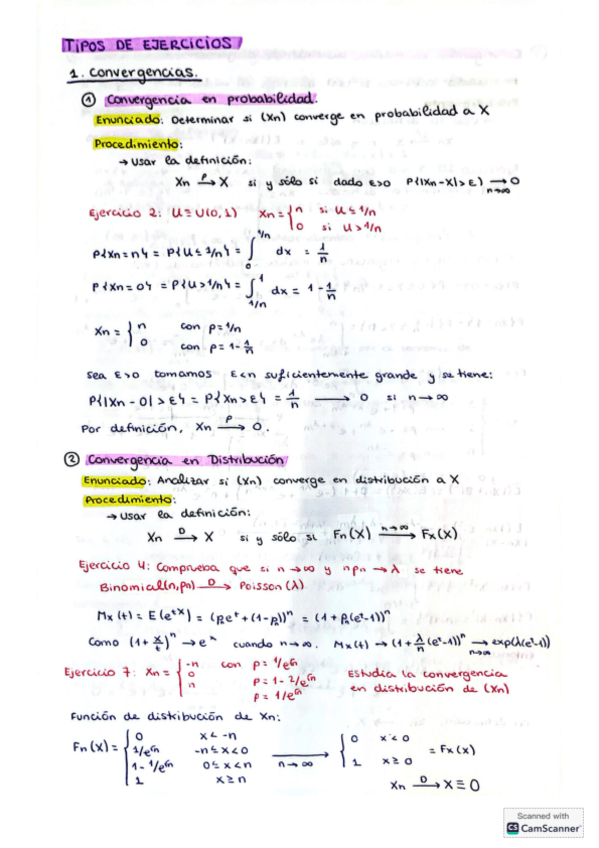 TIPOS DE EJERCICIOS
1. Convergencias.
① Convergencia en probabilidad.
Enunciado: Determinar si (Xn) converge en probabilidad a X
Procedimiento:
→ Usar la definición:
Xn →^P X si y sólo si dado ε>0 P{|Xn-X|>ε} →_{n→∞} 0
Ejercicio 2: U≡U(0,1) Xn = { n si U≤1/n
0 si U>1/n
P{Xn=n} = P{U≤1/n} = ∫_0^{1/n} dx = 1/n
P{Xn=0} = P{U>1/n} = ∫_{1/n}^1 dx = 1 - 1/n
Xn = { n con p=1/n
0 con p=1-1/n
Sea ε>0 tomamos ε<n suficientemente grande y se tiene:
P{|Xn-0|>ε} = P{Xn>ε} = 1/n → 0 si n→∞
Por definición, Xn →^P 0.
② Convergencia en Distribución
Enunciado: Analizar si (Xn) converge en distribución a X
Procedimiento:
→ Usar la definición:
Xn →^D X si y sólo si Fn(X) →^{n→∞} Fx(X)
Ejercicio 4: Comprueba que si n→∞ y npn→λ se tiene
Binomial(n,pn) →^D Poisson(λ)
Mx(t) = E(e^{tX}) = (Pn e^t + (1-Pn))^n = (1+Pn(e^t-1))^n
Como (1+x/t)^n → e^x cuando n→∞. Mx(t) → (1+λ/n (e^t-1))^n →_{n→∞} exp(λ(e^t-1))
Ejercicio 7: Xn = { -n con p=1/e^{√n} Estudia la convergencia
0 p=1-2/e^{√n} en distribución de (Xn)
n p=1/e^{√n}
Función de distribución de Xn:
Fn(X) = { 0 x<-n
1/e^{√n} -n≤x<0
1-1/e^{√n} 0≤x<n
1 x≥n
→_{n→∞} { 0 x<0
1 x≥0 = Fx(x)
Xn →^D X≡0
Scanned with
CS CamScanner